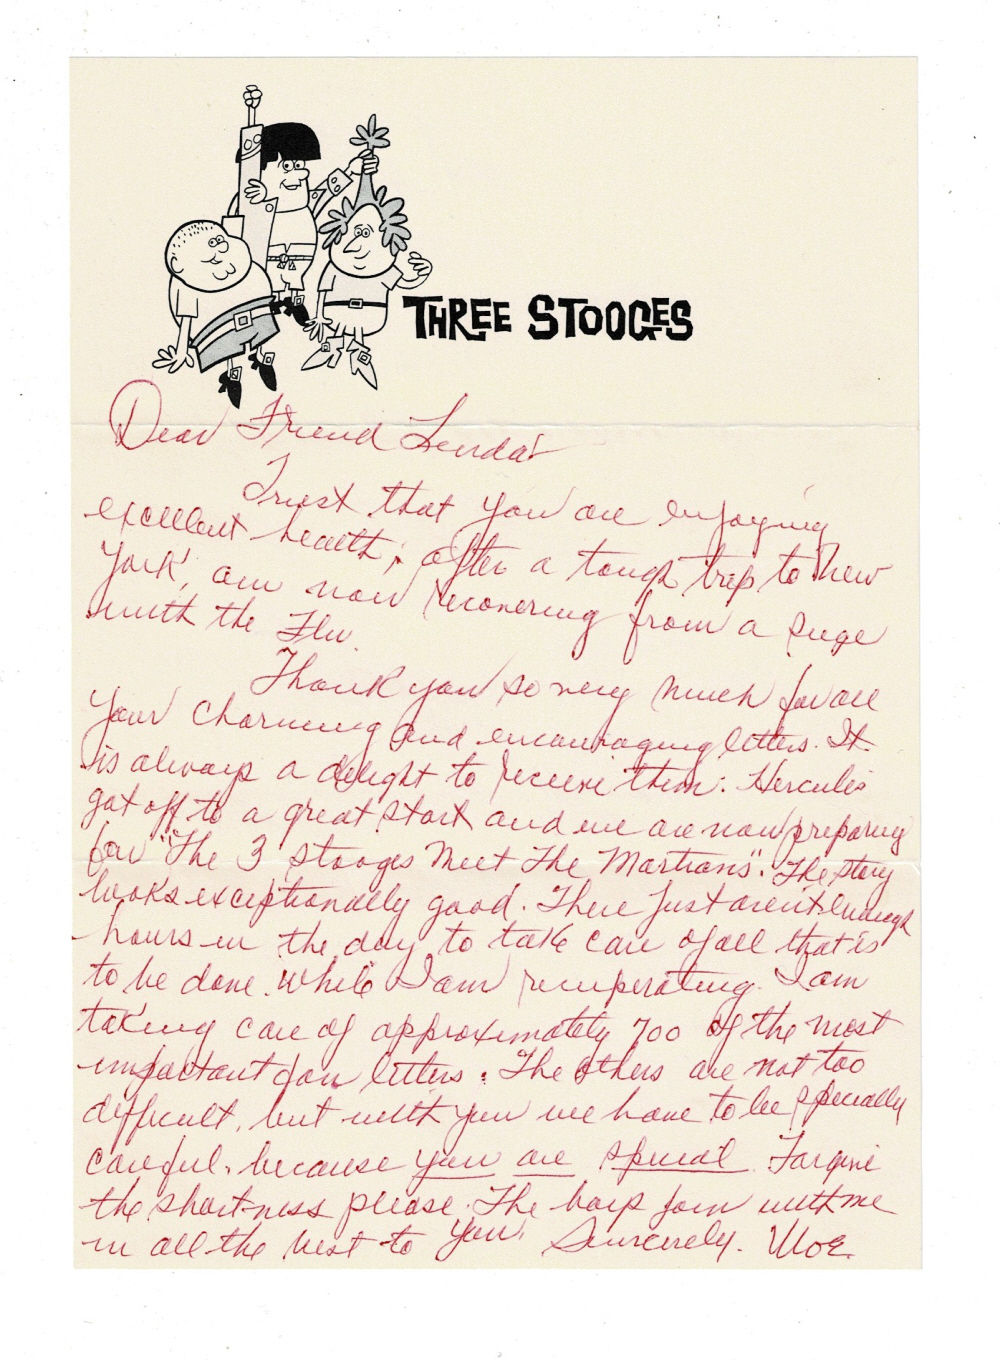 THREE STOOGES
Dear Friend Linda:
Trust that you are enjoying
excellent health; after a tough trip to New
York, am now recovering from a siege
with the Flu.
Thank you so very much for all
your charming and encouraging letters. It
is always a delight to receive them. Hercules
got off to a great start and we are now preparing
for "The 3 Stooges Meet The Martians". The story
looks exceptionally good. There just aren't enough
hours in the day to take care of all that is
to be done. While I am recuperating I am
taking care of approximately 700 of the most
important fan letters. The others are not too
difficult, but with you we have to be specially
careful, because you are special. Forgive
the shortness please. The boys join with me
in all the best to you. Sincerely. Moe.